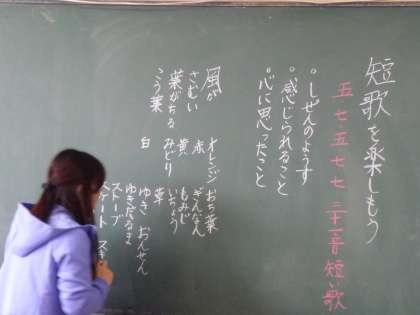 短歌を楽しもう
五七五七七 三十一音 短い歌
。しぜんのようす
。感じられること
。心に思ったこと
風が
さむい
葉がちる
こう葉
オレンジ
赤
黄
みどり
白
おち葉
ぎんなん
もみじ
いちょう
草
ゆき おんせん
ゆきだるま
ストーブ
スケート スキ